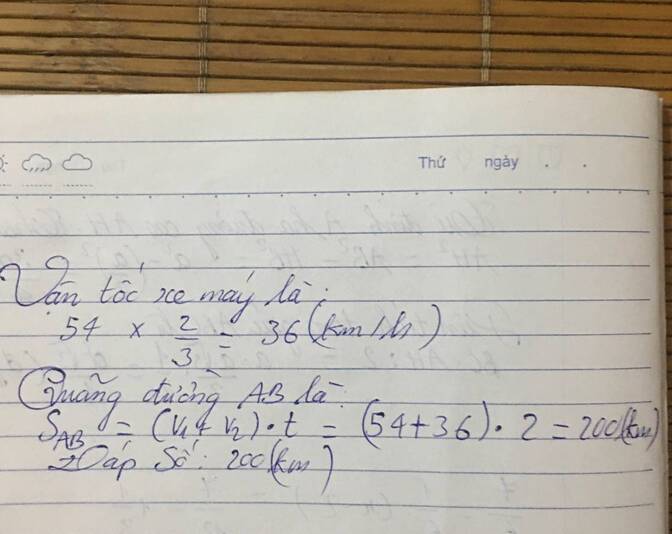 Thứ ngày . .
Vận tốc xe máy là:
54 x 2/3 = 36 (km/h)
Quãng đường AB là:
S_AB = (v₁ + v₂) . t = (54+36) . 2 = 200 (km)
Đáp Số: 200 (km)